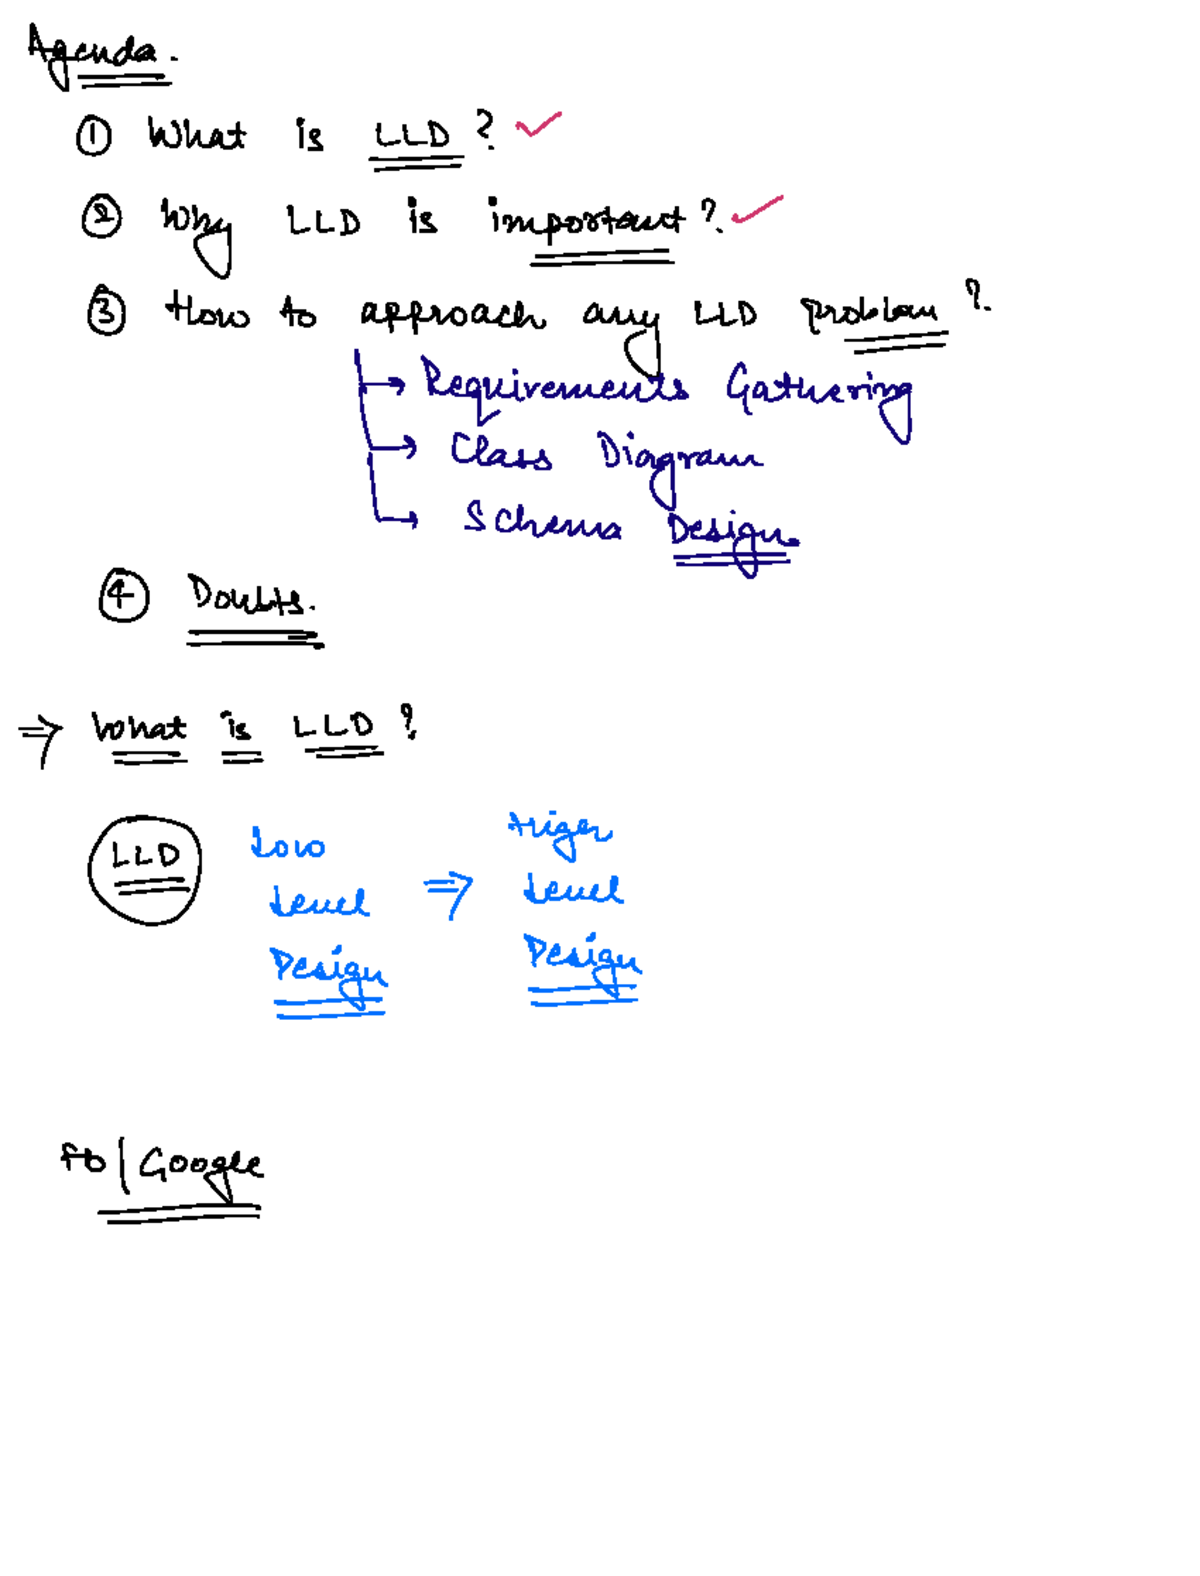 Agenda.
① What is LLD ?
② Why LLD is important ?
③ How to approach any LLD problem ?
→ Requirements Gathering
→ Class Diagram
→ Schema Design
④ Doubts.
⇒ What is LLD ?
LLD Low Level Design ⇒ Higer Level Design
fb | Google